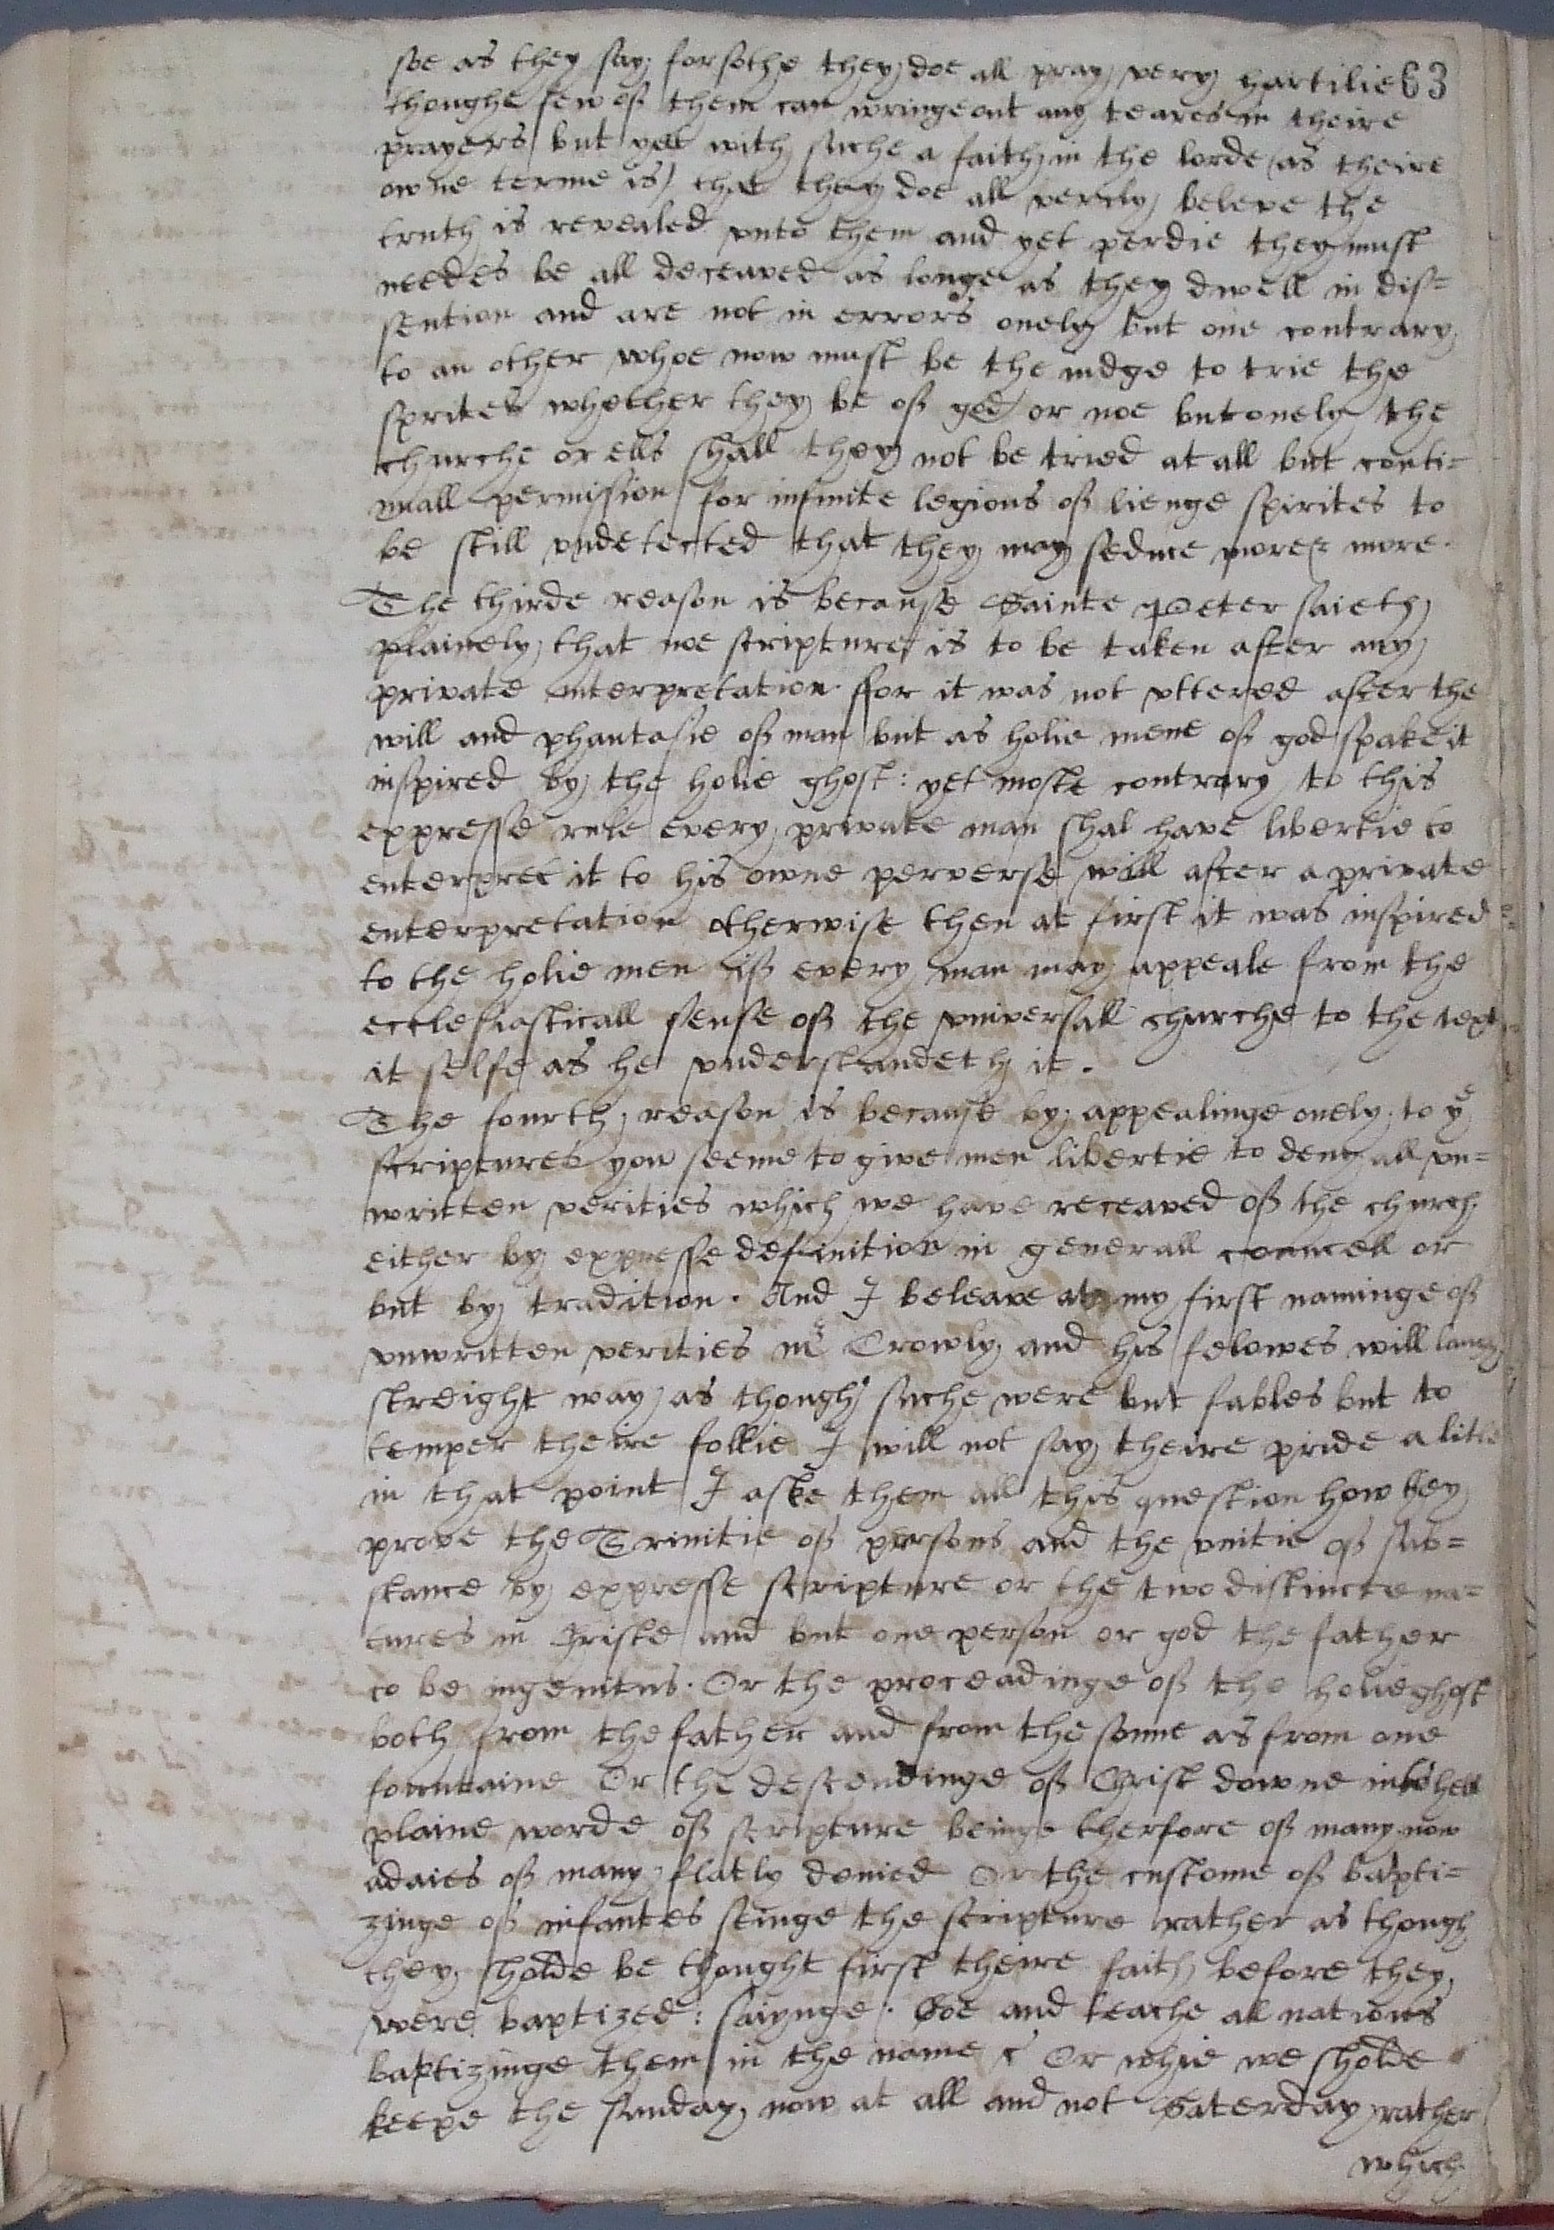 soe as they say, forsothe they doe all pray very hartilie 63
thoughe few of them can wringe out any teares in theire
prayers but yett with suche a faith in the lorde (as theire
owne terme is) that they doe all verely beleve the
truth is revealed unto them and yet perdie they must
needes be all deceaved as longe as they dwell in dis=
sention and are not in errors onely but one contrary
to an other whoe now must be the iudge to trie the
sprites whether they be of god or noe but onely the
churche or ells shall they not be tried at all but conti=
nuall permission for infinite legions of lienge spirites to
be still undetected that they may seduce more & more.
The thirde reason is because Sainte Peter saieth
plainely that noe scripture is to be taken after any
private interpretation. ffor it was not uttered after the
will and phantasie of man but as holie mene of god spake it
inspired by the holie ghost: yet moste contrary to this
expresse rule every private man shal have libertie to
enterpret it to his owne perverse will after a private
enterpretation otherwise then at first it was inspired
to the holie men if every man may appeale from the
ecclesiasticall sense of the universall churche to the text
it selfe as he understandeth it.
The fourth reason is because by appealinge onely to yͤ
scriptures you seeme to give men libertie to deny all un=
written verities which we have receaved of the church
either by expresse definition in generall councell or
but by tradition. And I beleave at my first naminge of
unwritten verities mʳ Crowly and his felowes will laugh
streight way as though suche were but fables but to
temper theire follie I will not say theire pride a litle
in that point I aske them all this question how they
prove the Trinitie of persons and the unitie of sub=
stance by expresse scripture or the two distincte na=
tures in Criste and but one person or god the father
to be ingenitus. Or the proceadinge of the holie ghost
both from the father and from the sonne as from one
fountaine Or the descendinge of Christ downe into hell
plaine worde of scripture beinge therfore of many now
adaies of many flatly denied Or the custome of bapti=
zinge of infantes seinge the scripture rather as though
they sholde be thought first theire faith before they
were baptized: sayinge. Goe and teache all nations
baptizinge them in the name &c Or whie we sholde
keepe the sunday now at all and not Saterday rather
which